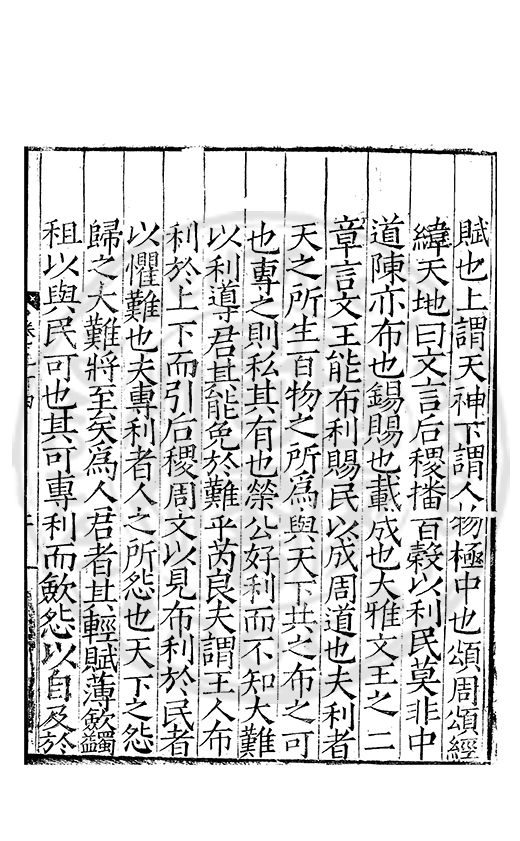 賦也上謂天神下謂人物極中也頌周頌經
緯天地曰文言后稷播百穀以利民莫非中
道陳亦布也錫賜也載成也大雅文王之二
章言文王能布利賜民以成周道也夫利者
天之所生百物之所為與天下共之布之可
也專之則私其有也榮公好利而不知大難
以利導君其能免於難乎芮良夫謂王人布
利於上下而引后稷周文以見布利於民者
以懼難也夫專利者人之所怨也天下之怨
歸之大難將至矣為人君者其輕賦薄歛蠲
租以與民可也其可專利而歛怨以自及於